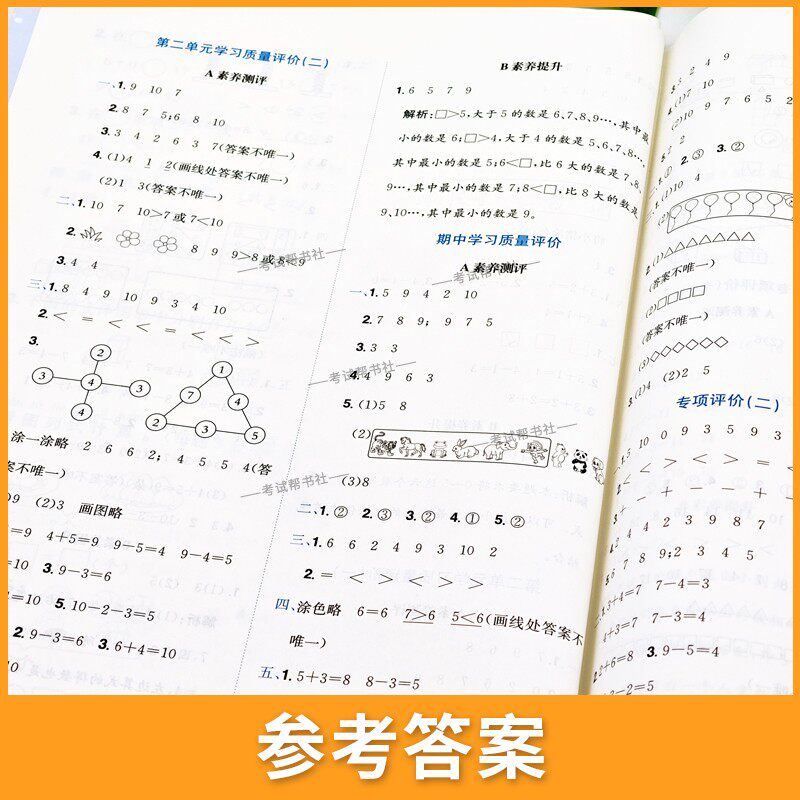 第二单元学习质量评价(二)
A 素养测评
一、1. 9 10 7
2. 8 7 5;6 8 10
3. 3 4 2 6 3 7(答案不唯一)
4. (1)4 1 2(画线处答案不唯一)
(2)1 3(答案不唯一)
二、1. 10 7 10>7 或 7<10
2. 8 9 9>8 或 8<9
3. 4 4
三、1. 8 4 9 10 9 3 4 10
2. < = < = < < <
3.
2
3 4 3
4
1
7 4
2 3 5
涂一涂略 2 6 6 2;4 5 5 4(答
案不唯一)
)9 (2)3 画图略
=9 4+5=9 9-5=4 9-4=5
=10 3. 9-3=6
=10 5. 10-2-3=5
2. 9-3=6 3. 6+4=10
=10
B 素养提升
1. 6 5 7 9
解析:□>5,大于 5 的数是 6、7、8、9…,其中最
小的数是 6;□>4,大于 4 的数是 5、6、7、8…,
其中最小的数是 5;6<□,比 6 大的数是 7、8、
9…,其中最小的数是 7;8<□,比 8 大的数是
9、10…,其中最小的数是 9。
期中学习质量评价
A 素养测评
一、1. 5 9 4 2 10
2. 7 8 9; 9 7 5
3. 3 3
4. 4 9 6 3
5. (1)5 8
(2)
(3)8
二、1. ② 2. ③ 3. ② 4. ① 5. ②
三、1. 6 6 2 4 9 3 10 2
2. = < > < > >
四、涂色略 6=6 7>6 5<6(画线处答案不
唯一)
五、1. 5+3=8 8-3=5
3 2 4 9
4. (1)7
(2)10 9 7 6 5 2
2. ③ 3. ②
(1)10 4
2. (1)△△△△△△△△
(答案不唯一)
(2)□□□□
(答案不唯一)
(3)◇◇◇◇◇◇
3. (1)4 (2)2 5
专项评价(二)
考试帮书社
考试帮书社
考试帮书社
考试帮书社
考试帮书社
参考答案